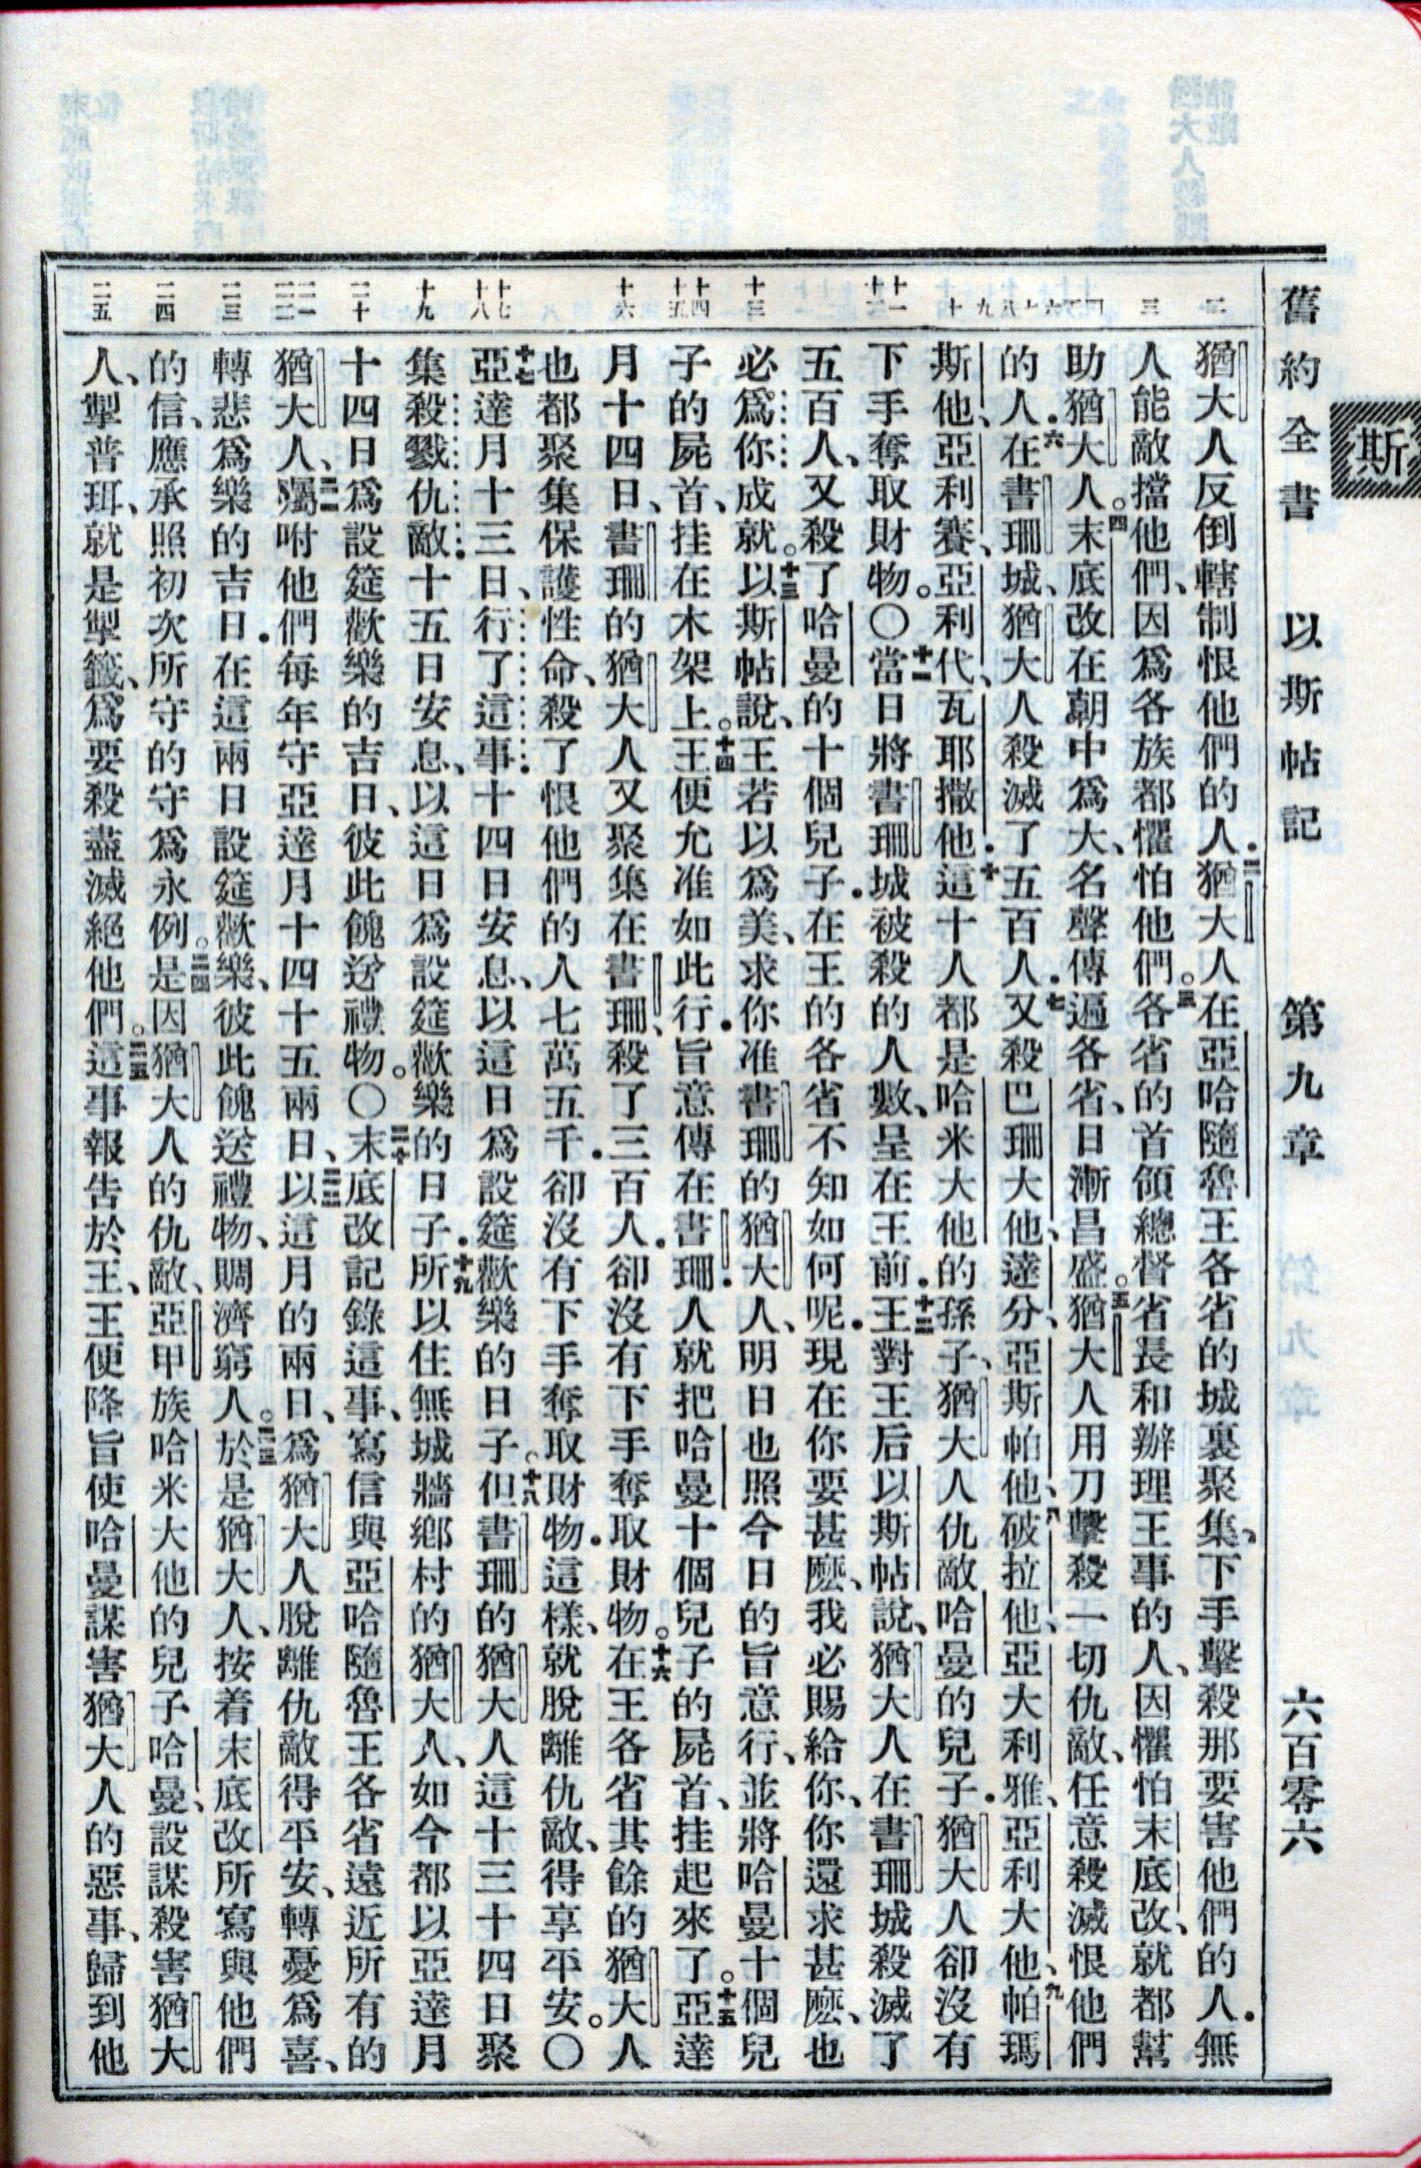 斯
舊約全書 以斯帖記 第九章 六百零六
二
三
四 五 六 七 八 九 十
十一 十二
十三
十四 十五
十六
十七 十八
十九
二十
二一 二二
二三
二四
二五
猶大人反倒轄制恨他們的人．二猶大人在亞哈隨魯王各省的城裏聚集、下手擊殺那要害他們的人．無
人能敵擋他們、因爲各族都懼怕他們。三各省的首領總督省長和辦理王事的人、因懼怕末底改、就都幫
助猶大人。四末底改在朝中爲大、名聲傳遍各省、日漸昌盛。五猶大人用刀擊殺一切仇敵、任意殺滅恨他們
的人．六在書珊城、猶大人殺滅了五百人．七又殺巴珊大他、達分、亞斯帕他、八破拉他、亞大利雅、亞利大他、九帕瑪
斯他、亞利賽、亞利代、瓦耶撒他．十這十人都是哈米大他的孫子、猶大人仇敵哈曼的兒子．猶大人卻沒有
下手奪取財物。〇十一當日將書珊城被殺的人數、呈在王前．十二王對王后以斯帖說、猶大人在書珊城殺滅了
五百人、又殺了哈曼的十個兒子．在王的各省不知如何呢．現在你要甚麽、我必賜給你、你還求甚麽、也
必爲你成就。十三以斯帖說、王若以爲美、求你准書珊的猶大人、明日也照今日的旨意行、並將哈曼十個兒
子的屍首、挂在木架上。十四王便允准如此行．旨意傳在書珊．人就把哈曼十個兒子的屍首、挂起來了。十五亞達
月十四日、書珊的猶大人又聚集在書珊、殺了三百人．卻沒有下手奪取財物。十六在王各省其餘的猶大人
也都聚集保護性命、殺了恨他們的人七萬五千．卻沒有下手奪取財物．這樣、就脫離仇敵、得享平安。〇
十七亞達月十三日、行了這事．十四日安息、以這日爲設筵歡樂的日子。十八但書珊的猶大人這十三十四日聚
集殺戮仇敵．十五日安息、以這日爲設筵歡樂的日子．十九所以住無城牆鄉村的猶大人、如今都以亞達月
十四日爲設筵歡樂的吉日、彼此餽送禮物。〇二十末底改記錄這事、寫信與亞哈隨魯王各省遠近所有的
猶大人、二一囑咐他們每年守亞達月十四十五兩日、二二以這月的兩日、爲猶大人脫離仇敵得平安、轉憂爲喜、
轉悲爲樂的吉日．在這兩日設筵歡樂、彼此餽送禮物、賙濟窮人。二三於是猶大人、按着末底改所寫與他們
的信、應承照初次所守的守爲永例。二四是因猶大人的仇敵、亞甲族哈米大他的兒子哈曼、設謀殺害猶大
人、掣普珥、就是掣籤、爲要殺盡滅絕他們。二五這事報告於王、王便降旨使哈曼謀害猶大人的惡事、歸到他